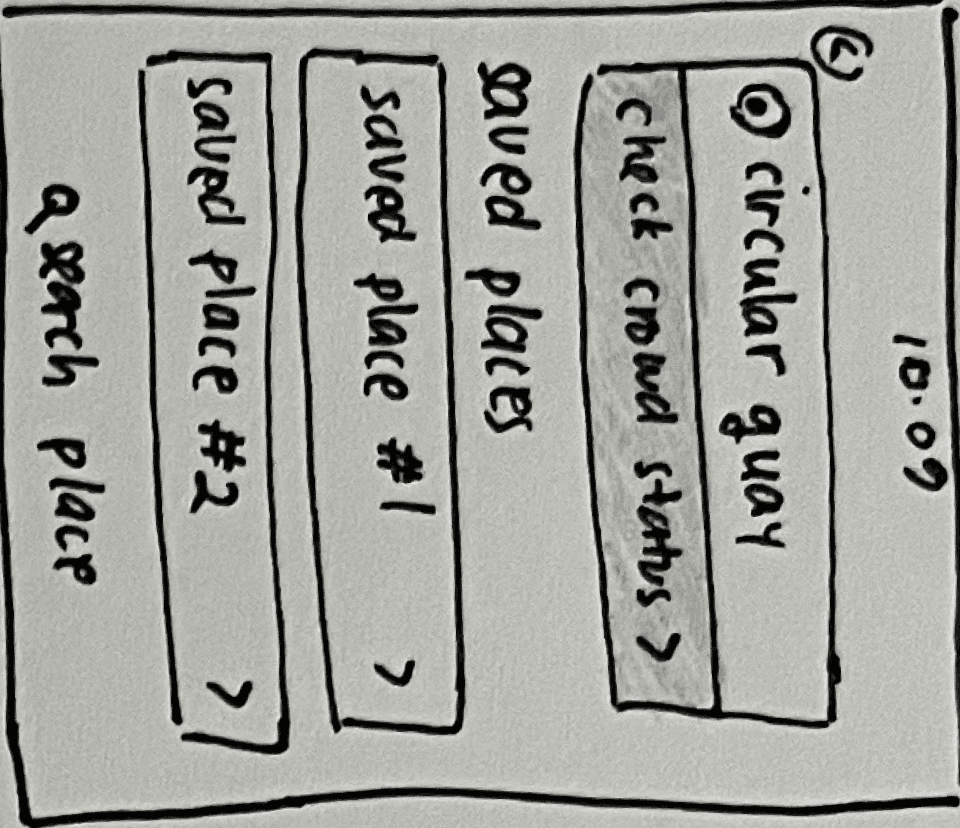 10.09
circular quay
check crowd status >
saved places
saved place #1 >
saved place #2 >
search place